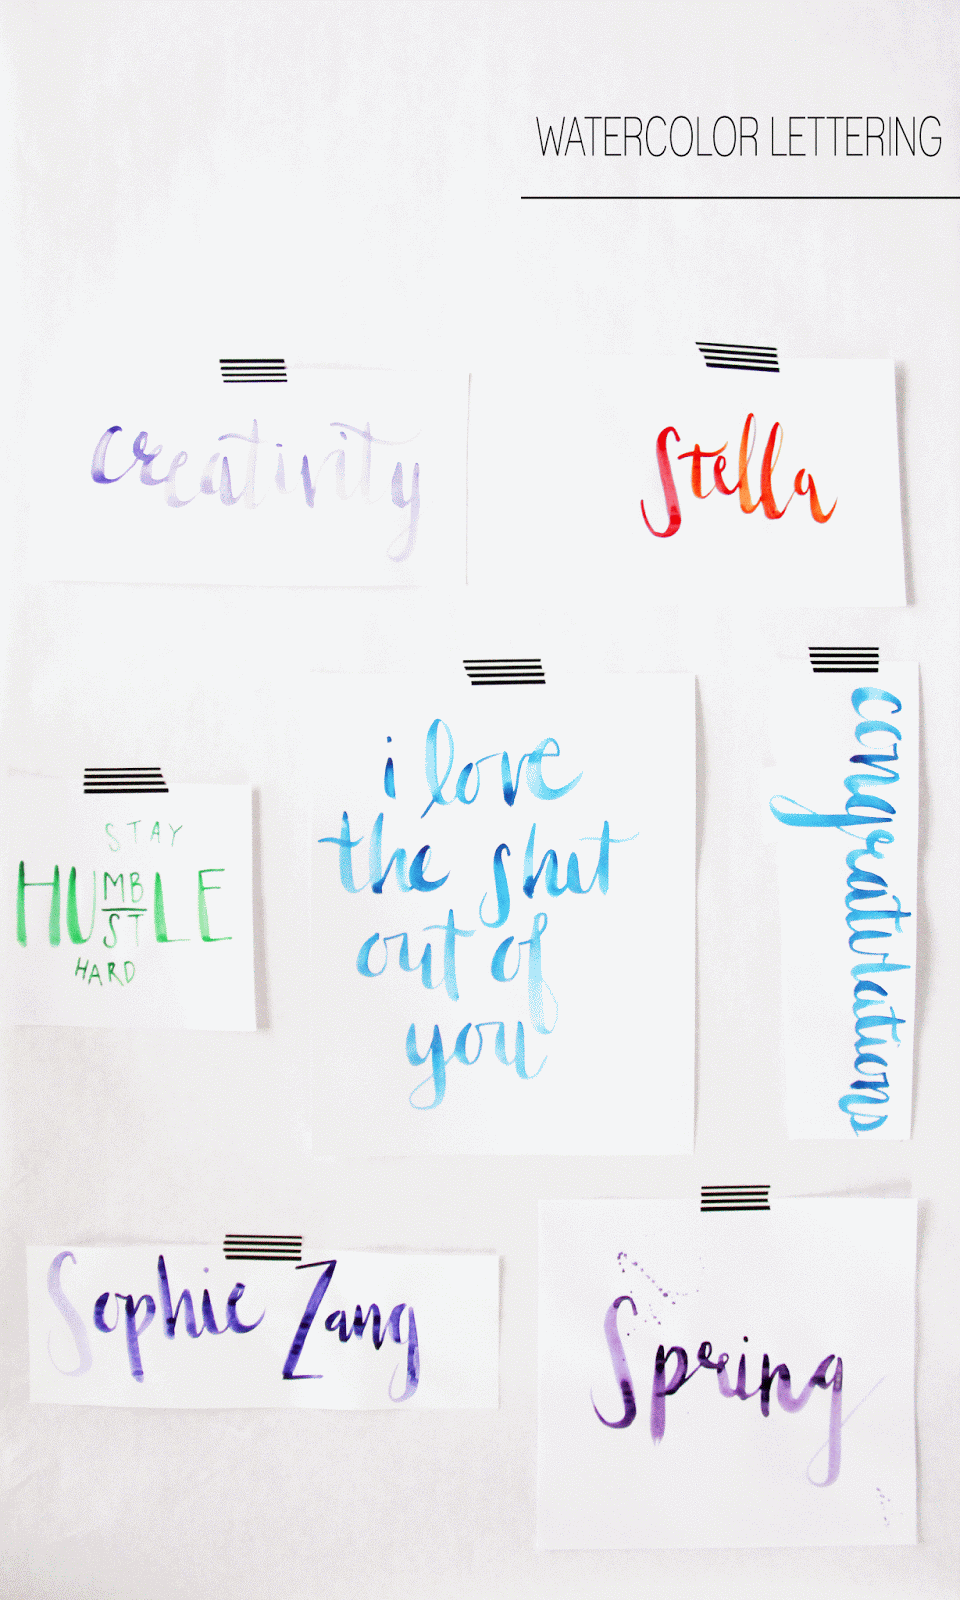 WATERCOLOR LETTERING
creativity
Stella
i love
the shit
out of
you
congratulations
STAY
HUMBLE
HUSTLE
HARD
Sophie Zang
Spring